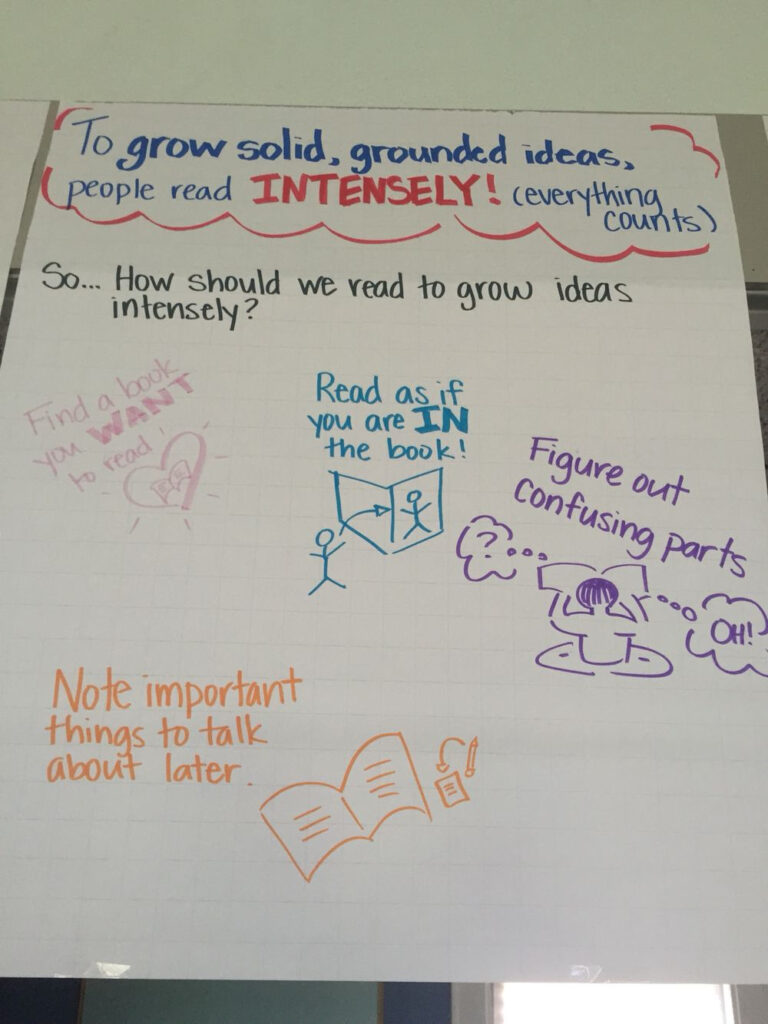 To grow solid, grounded ideas,
people read INTENSELY! (everything
counts)
So... How should we read to grow ideas
intensely?
Find a book
you WANT
to read!
Read as if
you are IN
the book!
Figure out
confusing parts
?
OH!
Note important
things to talk
about later.